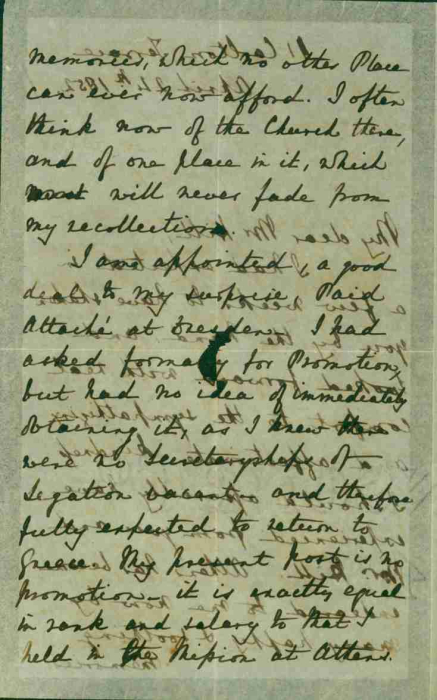 memories, which no other Place
can ever now afford. I often
think now of the Church there,
and of one place in it, which
will never fade from
my recollection.
I am appointed, a good
deal to my surprise, Paid
Attaché at Dresden. I had
asked formally for Promotion,
but had no idea of immediately
obtaining it, as I knew there
were no Secretaryships of
Legation vacant - and therefore
fully expected to return to
Greece. My present Post is no
Promotion - it is exactly equal
in rank and salary to that I
held in the Mission at Athens.